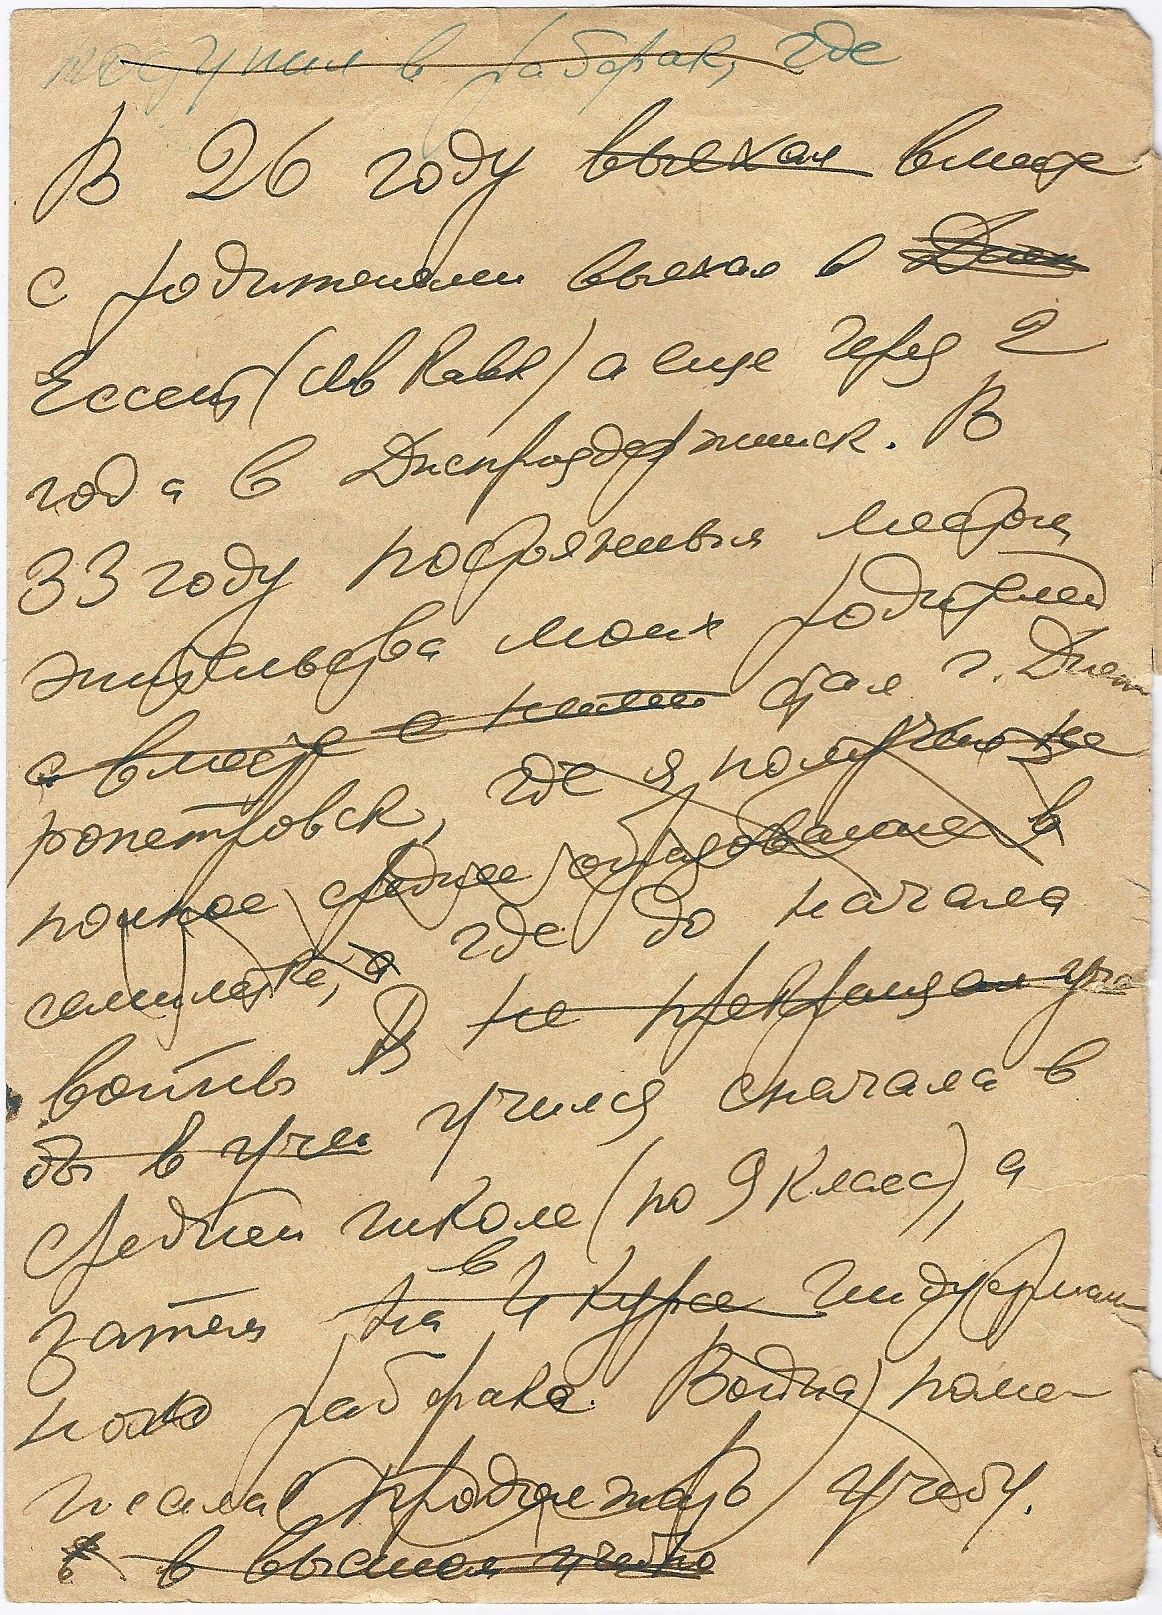 поступил в рабфак, где
В 26 году выехал вместе
с родителями выехал в Днеп
Ессент (Сев Кавк) а еще через 2
года в Днепродзержинск. В
33 году постоянным местом
жительства моих родителей
а вместе с ними стал г. Днеп
ропетровск, где я получил не
полное среднее образование в
семилетке, а где до начала
войны Я не прекращал уче
бы в учи учился сначала в
средней школе (по 9 класс), а
затем на 4 курсе в индустриаль
ного рабфака. Война поме-
шала продолжать учебу.
в высшем учебно